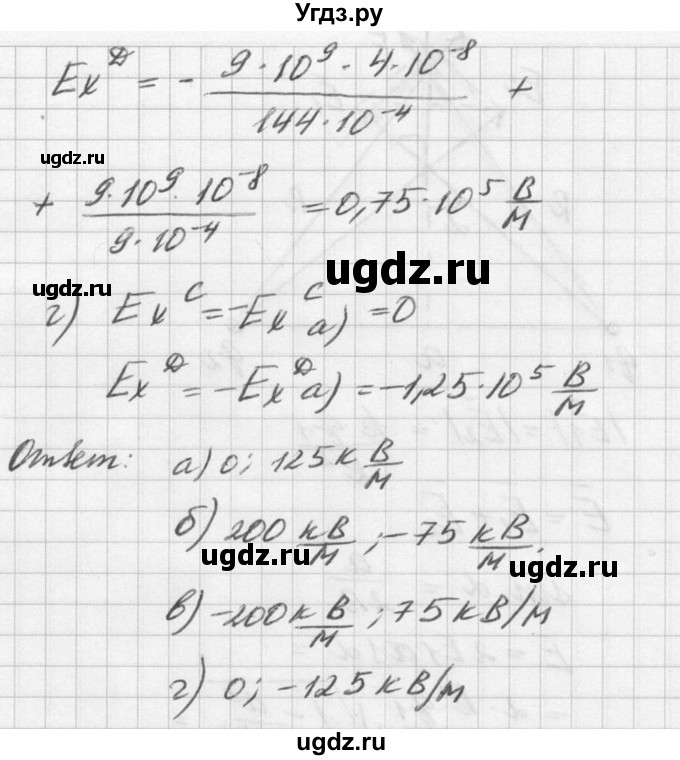 Угдз.ру
Eₓᴰ = - 9·10⁹·4·10⁻⁸ / 144·10⁻⁴ +
ugdz.ru
+ 9·10⁹·10⁻⁸ / 9·10⁻⁴ = 0,75·10⁵ В/м
ugdz.ru
ugdz.ru
г) Eₓᶜ = -Eₓᶜ а) = 0
Eₓᴰ = -Eₓᴰ а) = -1,25·10⁵ В/м
Ответ: а) 0; 125 к В/м
б) 200 кВ/м; -75 кВ/м.
ugdz.ru ugdz.ru
в) -200 к В/м; 75 кВ/м
г) 0; -125 кВ/м
ugdz.ru
ugdz.ru